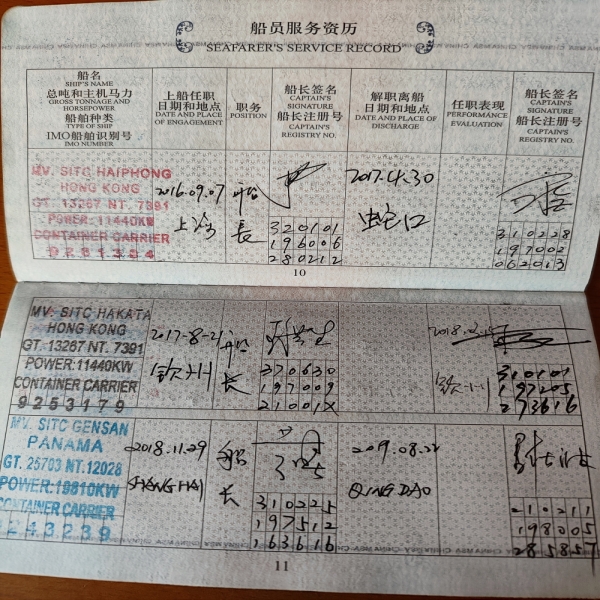 船员服务资历
SEAFARER'S SERVICE RECORD
船名
SHIP'S NAME
总吨和主机马力
GROSS TONNAGE AND
HORSEPOWER
船舶种类
TYPE OF SHIP
IMO船舶识别号
IMO NUMBER
上船任职
日期和地点
DATE AND PLACE
OF ENGAGEMENT
职务
POSITION
船长签名
CAPTAIN'S
SIGNATURE
船长注册号
CAPTAIN'S
REGISTRY NO.
解职离船
日期和地点
DATE AND PLACE OF
DISCHARGE
任职表现
PERFORMANCE
EVALUATION
船长签名
CAPTAIN'S
SIGNATURE
船长注册号
CAPTAIN'S
REGISTRY NO.
MV. SITC HAIPHONG
HONG KONG
GT. 13267 NT. 7391
POWER:11440KW
CONTAINER CARRIER
2016.09.07
上海
長
320101
196006
280212
2017.4.30
蛇口
310228
197002
062013
10
MV. SITC HAKATA
HONG KONG
GT. 13267 NT. 7391
POWER:11440KW
CONTAINER CARRIER
9253179
2017-8-21
钦州
长
370630
197009
21001X
钦州
310101
197205
273616
MV. SITC GENSAN
PANAMA
GT. 25703 NT.12028
POWER:19810KW
CONTAINER CARRIER
9243239
2018.11.29
SHANGHAI
船
长
310225
197512
163616
2019.08.22
QINGDAO
210211
198005
285857
11